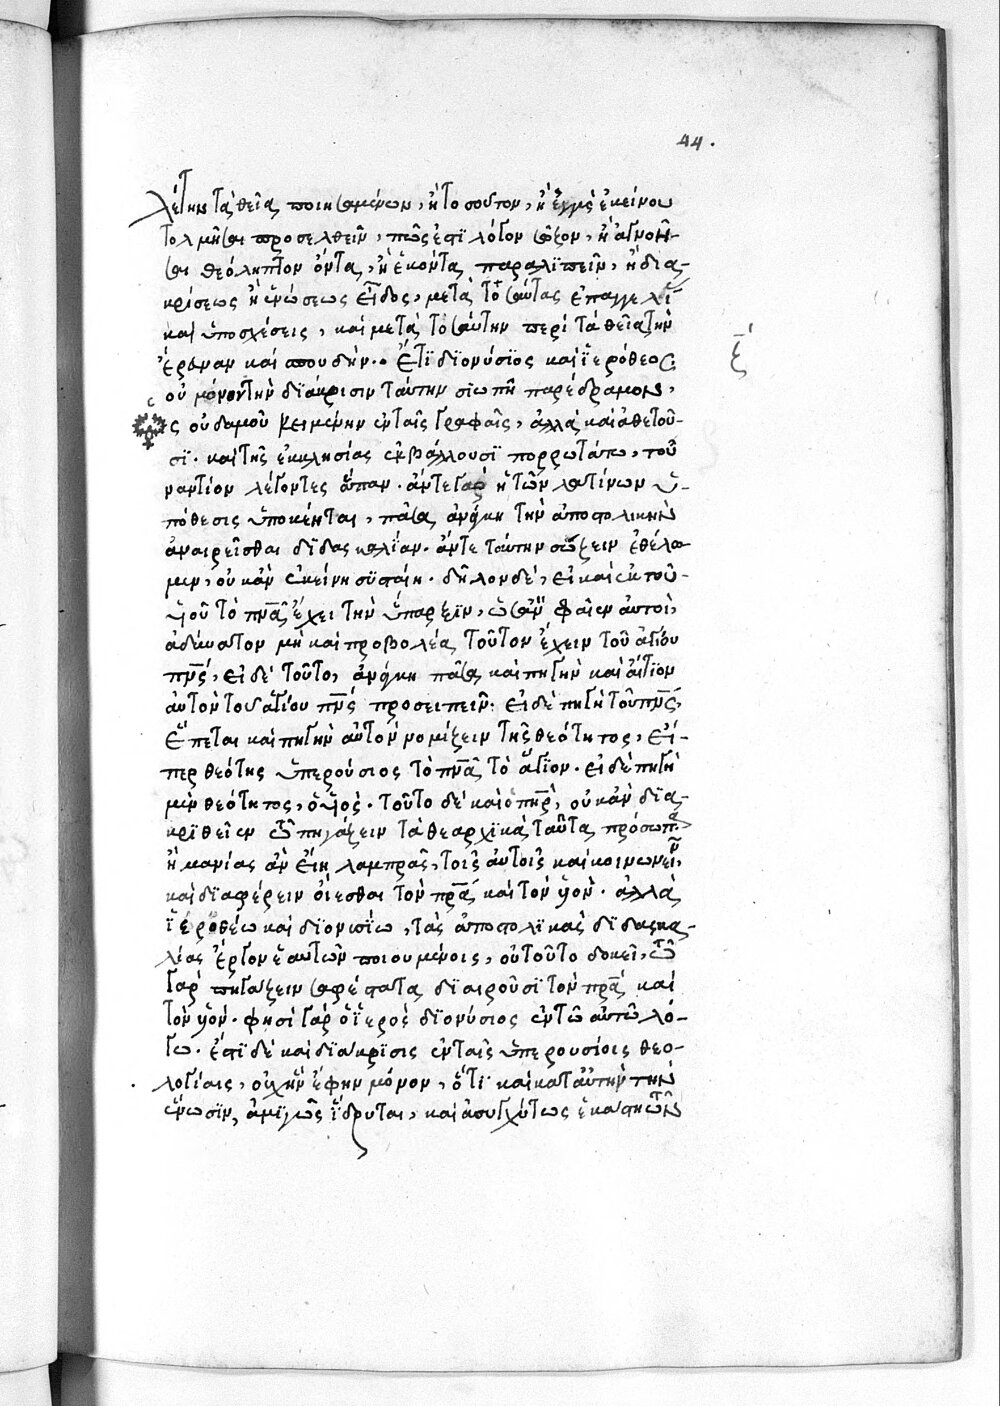 44.
λέτην τὰ θεῖα ποιησαμένων, ἢ τοσοῦτον, ἢ ἐγγὺς ἐκείνου
τολμῆσαι προσελθεῖν, πῶς ἐστὶ λόγον σῶζον, ἢ ἀγνοῆ-
σαι θεόληπτον ὄντα, ἢ ἑκόντα παραλϊπεῖν, ἢ δια-
κρίσεως ἢ ἑνώσεως εἶδος, μετὰ τοσαύτας ἐπαγγελί-
και ὑποσχέσεις, καὶ μετὰ τοσαύτην περὶ τὰ θεῖα τὴν
ἔρευναν καὶ σπουδήν.. Ἔτϊ δϊονύσϊος καὶ ἱερόθεος
ξ´
οὐ μόνον τὴν διάκρισιν ταύτην σϊωπῆ παρέδραμον,
ὡς οὐδαμοῦ κειμένην ἐν ταῖς γραφαῖς, ἀλλὰ καὶ ἀθετοῦ-
σϊ. καὶ τῆς ἐκκλησίας ἐκβάλλουσϊ πορρωτάτω, τοὐ
ναντίον λέγοντες ἅπαν. ἄν τε γὰρ ἡ τῶν λατίνων ὑ-
πόθεσις ὑποκέηται, πᾶσα ἀνάγκη τὴν ἀποστολικὴν
ἀναιρεῖσθαι διδασκαλΐαν. ἄν τε ταύτην σώζειν ἐθέλοι
μεν, οὐκ ἂν ἐκείνη σϋσταίη. δῆλον δέ, εἰ καὶ ἐκ τοῦ
υἱοῦ τὸ πνᾶ ἔχει τὴν ὕπαρξϊν, ὡς ἂν φαῖεν αὐτοί,
ἀδύνατον μὴ καὶ προβολέα τοῦτον ἔχειν τοῦ ἁγίου
πνς, εἰ δὲ τοῦτο, ἀνάγκη πᾶσα καὶ πηγὴν καὶ αἴτϊον
αὐτὸν τοῦ ἁγίου πνς προσειπεῖν. εἰ δὲ πηγὴ τοῦ πνς,
ἕπεται καὶ πηγὴν αὐτὸν νομίζειν τῆς θεότητος, εἴ-
περ θεότης ὑπερούσιος τὸ πνᾶ τὸ ἅγϊον. εἰ δὲ πηγὴ
μὲν θεότητος, ὁ υἱός. τοῦτο δὲ καὶ ὁ πηρ, οὐκ ἂν δϊα-
κρϊθεῖεν τῶ πηγάζειν τὰ θεαρχϊκὰ ταῦτα πρόσωπα
ἢ μανίας ἂν εἴη λαμπρᾶς, τοῖς αὐτοῖς καὶ κοινωνεῖν,
καὶ δϊαφέρειν οἴεσθαι τὸν πρα καὶ τὸν υἱόν. ἀλλὰ
ἱεροθέω καὶ δϊονυσίω, τὰς ἀποστολϊκὰς δϊδασκα-
λίας ἔργον ἑαυτῶν ποιουμένοις, οὐ τοῦτο δοκεῖ, τῶ
γὰρ πηγάζειν σαφέστατα δϊαιροῦσϊ τὸν πρα καὶ
τὸν υἱόν. φησὶ γὰρ ὁ ἱερὸς δϊονύσιος ἐν τῶ αὐτῶ λό-
γω. ἔστι δὲ καὶ δϊάκρϊσις ἐν ταῖς ὑπερουσίοις θεο-
λογίαις, οὐχ ἣν ἔφην μόνον, ὅτϊ καὶ κατ αὐτὴν τὴν
ἕνωσϊν, ἀμϊγῶς ἵδρυται, καὶ ἀσυγχύτως ἑκάστη τῶν